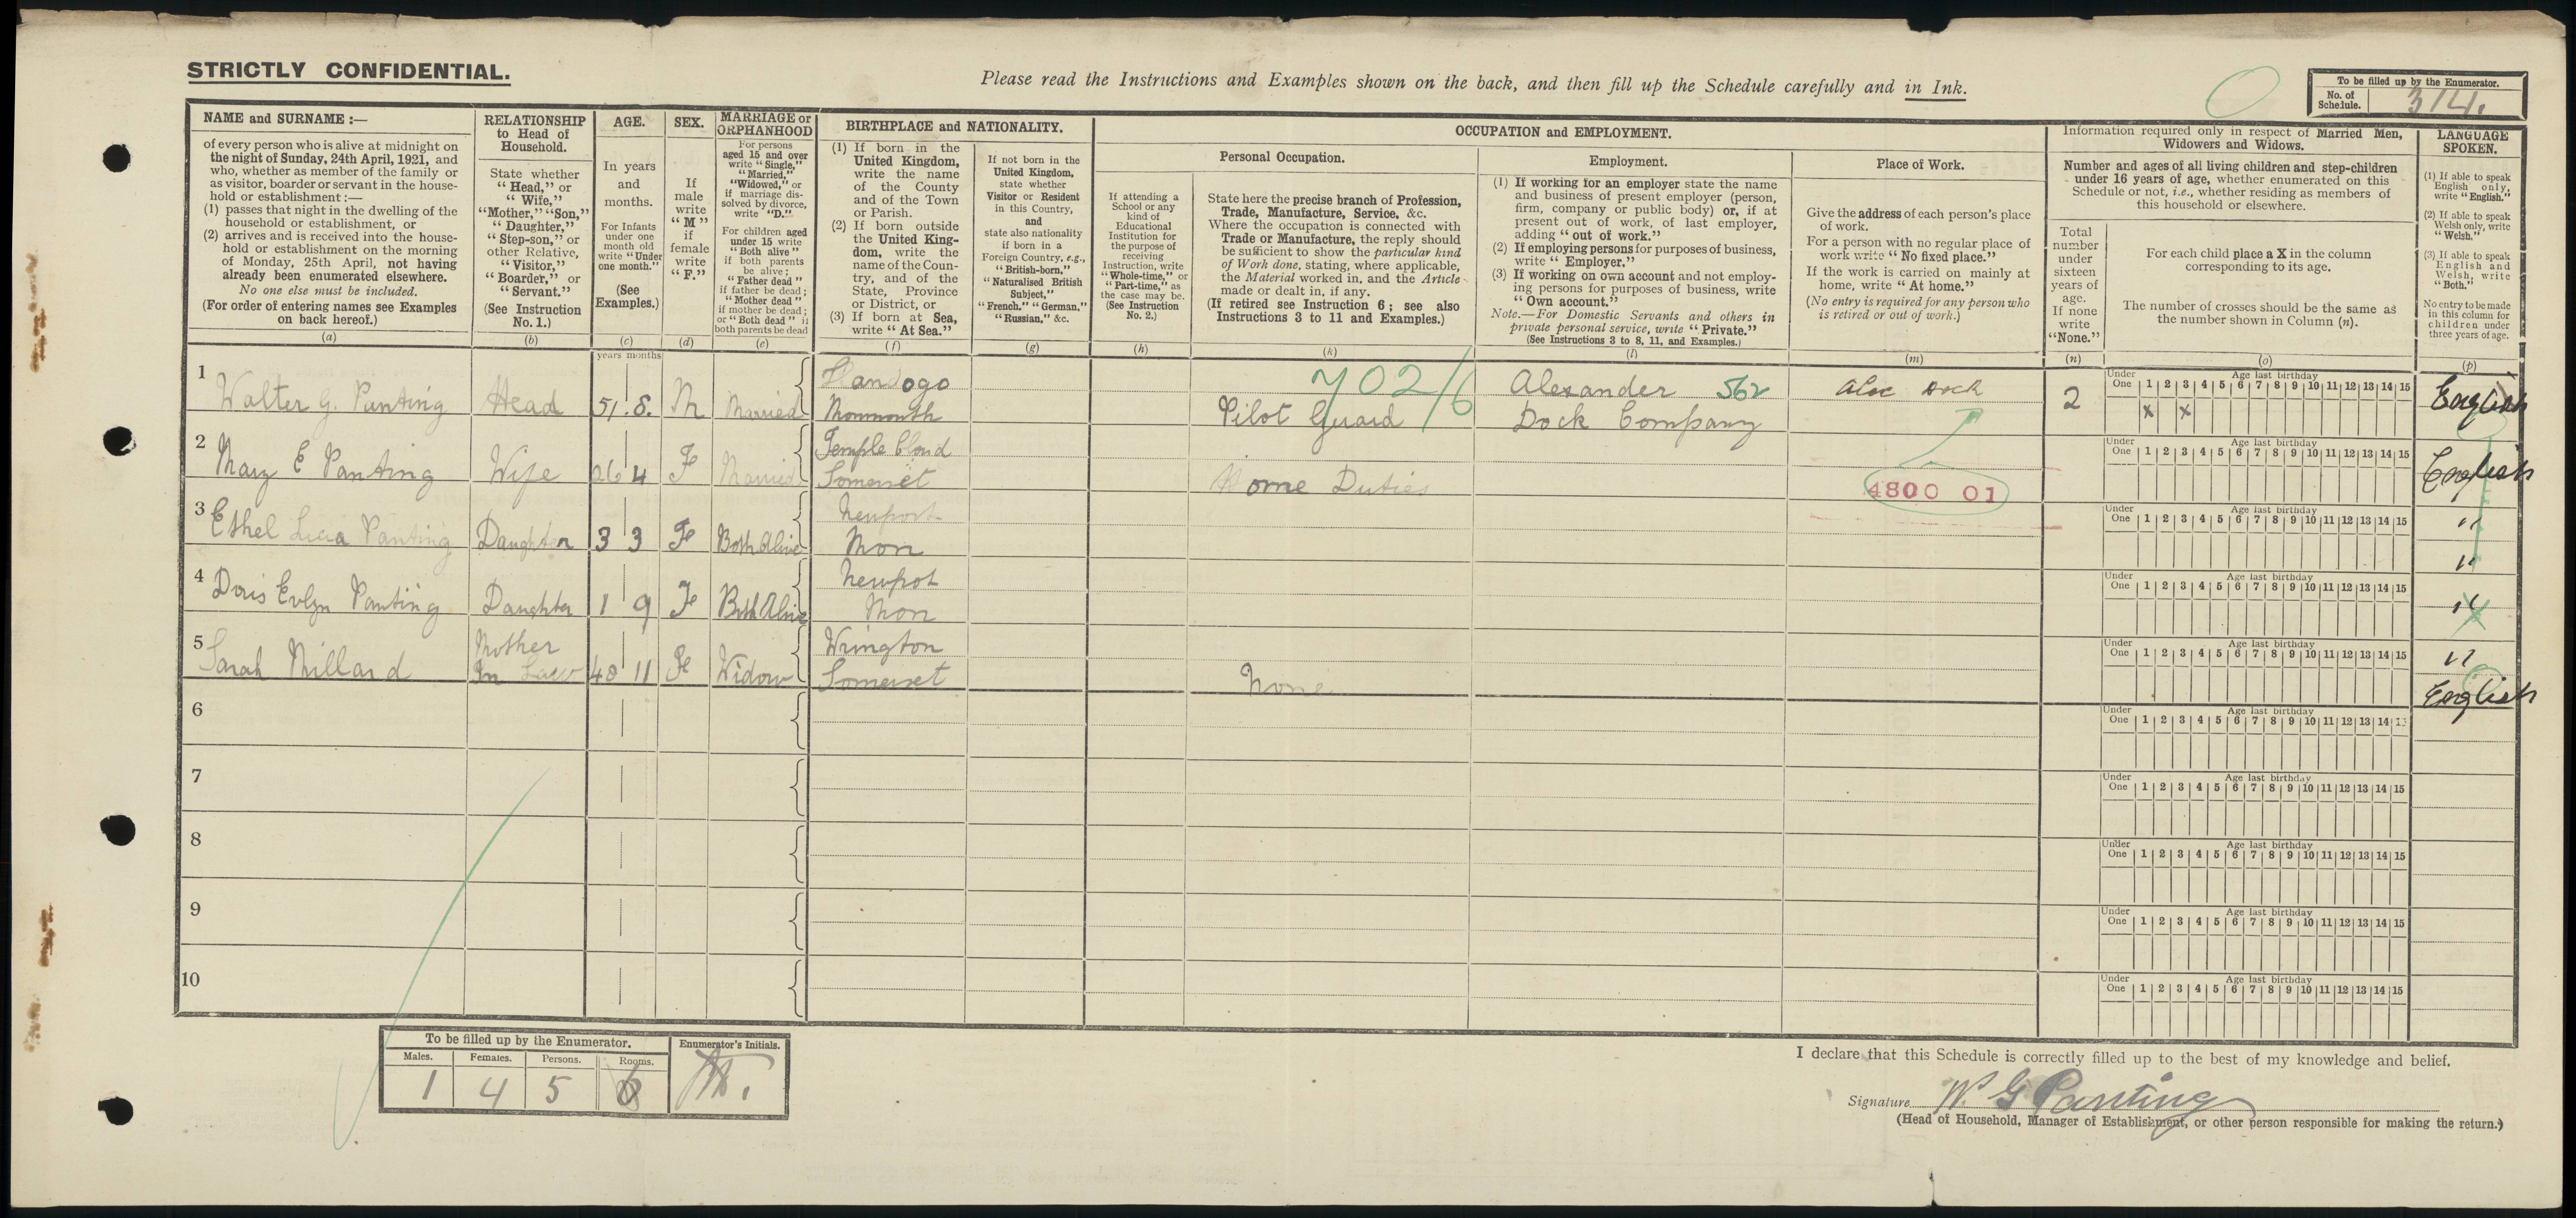 STRICTLY CONFIDENTIAL.
Please read the Instructions and Examples shown on the back, and then fill up the Schedule carefully and in Ink.
To be filled up by the Enumerator.
No. of Schedule. 314.
NAME and SURNAME :—
of every person who is alive at midnight on
the night of Sunday, 24th April, 1921, and
who, whether as member of the family or
as visitor, boarder or servant in the house-
hold or establishment :—
(1) passes that night in the dwelling of the
household or establishment, or
(2) arrives and is received into the house-
hold or establishment on the morning
of Monday, 25th April, not having
already been enumerated elsewhere.
No one else must be included.
(For order of entering names see Examples
on back hereof.)
(a)
RELATIONSHIP
to Head of
Household.
State whether
"Head," or
"Wife,"
"Mother," "Son,"
"Daughter,"
"Step-son," or
other Relative,
"Visitor,"
"Boarder," or
"Servant."
(See Instruction
No. 1.)
(b)
AGE.
In years
and
months.
For Infants
under one
month old
write "Under
one month."
(See
Examples.)
(c)
years months
SEX.
If
male
write
"M"
if
female
write
"F."
(d)
MARRIAGE or
ORPHANHOOD
For persons
aged 15 and over
write "Single,"
"Married,"
"Widowed," or
if marriage dis-
solved by divorce,
write "D."
For children aged
under 15 write
"Both alive"
if both parents
be alive;
"Father dead"
if father be dead;
"Mother dead"
if mother be dead;
or "Both dead" if
both parents be dead
(e)
BIRTHPLACE and NATIONALITY.
(1) If born in the
United Kingdom,
write the name
of the County
and of the Town
or Parish.
(2) If born outside
the United King-
dom, write the
name of the Coun-
try, and of the
State, Province
or District, or
(3) If born at Sea,
write "At Sea."
(f)
If not born in the
United Kingdom,
state whether
Visitor or Resident
in this Country,
and
state also nationality
if born in a
Foreign Country, e.g.,
"British-born,"
"Naturalised British
Subject,"
"French," "German,"
"Russian," &c.
(g)
OCCUPATION and EMPLOYMENT.
Personal Occupation.
If attending a
School or any
kind of
Educational
Institution for
the purpose of
receiving
Instruction, write
"Whole-time," or
"Part-time," as
the case may be.
(See Instruction
No. 2.)
(h)
State here the precise branch of Profession,
Trade, Manufacture, Service, &c.
Where the occupation is connected with
Trade or Manufacture, the reply should
be sufficient to show the particular kind
of Work done, stating, where applicable,
the Material worked in, and the Article
made or dealt in, if any.
(If retired see Instruction 6; see also
Instructions 3 to 11 and Examples.)
(k)
Employment.
(1) If working for an employer state the name
and business of present employer (person,
firm, company or public body) or, if at
present out of work, of last employer,
adding "out of work."
(2) If employing persons for purposes of business,
write "Employer."
(3) If working on own account and not employ-
ing persons for purposes of business, write
"Own account."
Note.—For Domestic Servants and others in
private personal service, write "Private."
(See Instructions 3 to 8, 11, and Examples.)
(l)
Place of Work.
Give the address of each person's place
of work.
For a person with no regular place of
work write "No fixed place."
If the work is carried on mainly at
home, write "At home."
(No entry is required for any person who
is retired or out of work.)
(m)
Information required only in respect of Married Men,
Widowers and Widows.
Number and ages of all living children and step-children
under 16 years of age, whether enumerated on this
Schedule or not, i.e., whether residing as members of
this household or elsewhere.
Total
number
under
sixteen
years of
age.
If none
write
"None."
(n)
For each child place a X in the column
corresponding to its age.
The number of crosses should be the same as
the number shown in Column (n).
(o)
LANGUAGE
SPOKEN.
(1) If able to speak
English only,
write "English."
(2) If able to speak
Welsh only, write
"Welsh."
(3) If able to speak
English and
Welsh, write
"Both."
No entry to be made
in this column for
children under
three years of age.
(p)
1 Walter G. Panting Head 51. 8. M Married Llandogo Monmouth Pilot Guard 702/6 Alexander 562 Dock Company Alex Dock 2 x x English
Under One Age last birthday 1 2 3 4 5 6 7 8 9 10 11 12 13 14 15
2 Mary E Panting Wife 26 4 F Married Temple Cloud Somerset Home Duties 4800 01 English
Under One Age last birthday 1 2 3 4 5 6 7 8 9 10 11 12 13 14 15
3 Ethel Panting Daughter 3 3 F Both Alive Newport Mon "
Under One Age last birthday 1 2 3 4 5 6 7 8 9 10 11 12 13 14 15
"
4 Doris Evlyn Panting Daughter 1 9 F Both Alive Newpot Mon "
Under One Age last birthday 1 2 3 4 5 6 7 8 9 10 11 12 13 14 15
5 Sarah Millard Mother In Law 48 11 F Widow Wrington Somerset None " English
Under One Age last birthday 1 2 3 4 5 6 7 8 9 10 11 12 13 14 15
6
Under One Age last birthday 1 2 3 4 5 6 7 8 9 10 11 12 13 14 15
7
Under One Age last birthday 1 2 3 4 5 6 7 8 9 10 11 12 13 14 15
8
Under One Age last birthday 1 2 3 4 5 6 7 8 9 10 11 12 13 14 15
9
Under One Age last birthday 1 2 3 4 5 6 7 8 9 10 11 12 13 14 15
10
Under One Age last birthday 1 2 3 4 5 6 7 8 9 10 11 12 13 14 15
To be filled up by the Enumerator.
Males. Females. Persons. Rooms.
1 4 5
Enumerator's Initials.
I declare that this Schedule is correctly filled up to the best of my knowledge and belief.
Signature W. G Panting
(Head of Household, Manager of Establishment, or other person responsible for making the return.)